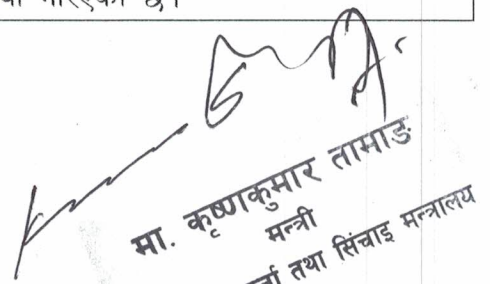 मा. कृष्णकुमार तामाङ
मन्त्री
तथा सिंचाइ मन्त्रालय